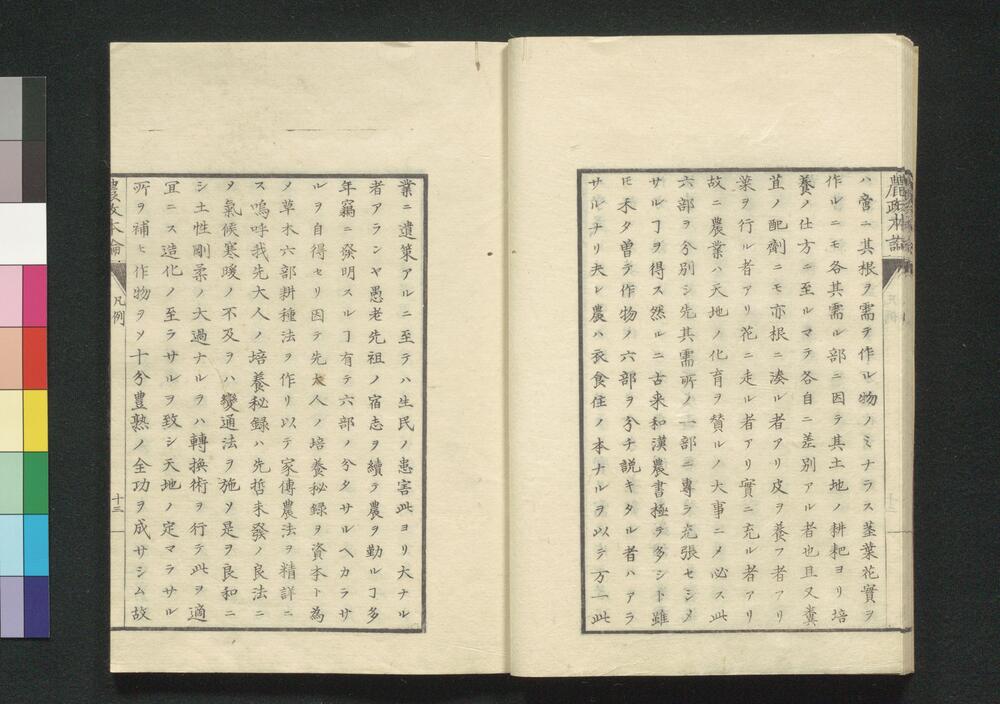 農政本論
ハ啻ニ其根ヲ需ヲ作ル物ノミナラス茎葉花實ヲ
作ルニモ各其需ル部ニ因テ其土地ノ耕耙ヨリ培
養ノ仕方ニ至ルマテ各自ニ差別アル者也且又糞
苴ノ配劑ニモ亦根ニ湊ル者アリ皮ヲ養フ者アリ
葉ヲ行ル者アリ花ニ走ル者アリ實ニ充ル者アリ
故ニ農業ハ天地ノ化育ヲ賛ルノ大事ニメ必ス此
六部ヲ分別シ先其需所ノ一部ニ專ラ充張セシメ
サルヿヲ得ス然ルニ古来和漢農書極テ多シト雖
𪜈未タ曽テ作物ノ六部ヲ分チ説キタル者ハアラ
サルナリ夫レ農ハ衣食住ノ本ナルヲ以テ万一此
業ニ遺策アルニ至テハ生民ノ患害此ヨリ大ナル
者アランヤ愚老先祖ノ宿志ヲ續テ農ヲ勤ルヿ多
年竊ニ發明スルヿ有テ六部ノ分タサルヘカラサ
ルヲ自得セリ因テ先大人ノ培養秘録ヲ資本ト為
メ草木六部耕種法ヲ作リ以テ家傳農法ヲ精詳ニ
ス嗚呼我先大人ノ培養秘録ハ先哲未發ノ良法ニ
ヲ氣候寒暖ノ不及ヲハ變通法ヲ施ソ是ヲ良和ニ
シ土性剛柔ノ大過ナルヲハ轉換術ヲ行テ此ヲ適
冝ニス造化ノ至ラサルヲ致シ天地ノ定マラサル
所ヲ補ヒ作物ヲソ十分豊熟ノ全功ヲ成サシム故
農政本論
凡例
十三